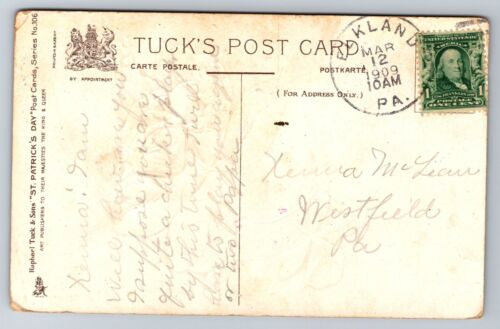 TUCK'S POST CARD
CARTE POSTALE.
POSTKARTE.
BY APPOINTMENT
(FOR ADDRESS ONLY.)
Raphael Tuck & Sons' "ST. PATRICK'S DAY" Post Cards, Series No. 106
ART PUBLISHERS TO THEIR MAJESTIES THE KING & QUEEN
ELKLAND
MAR
12
1909
10AM
PA.
POSTAGE
1
ONE CENT
1
Xenna I am
Well how are you
I suppose you are
quite a checker player
by this time
to play you a game
or two Papa
Xenna McLean
Westfield
Pa